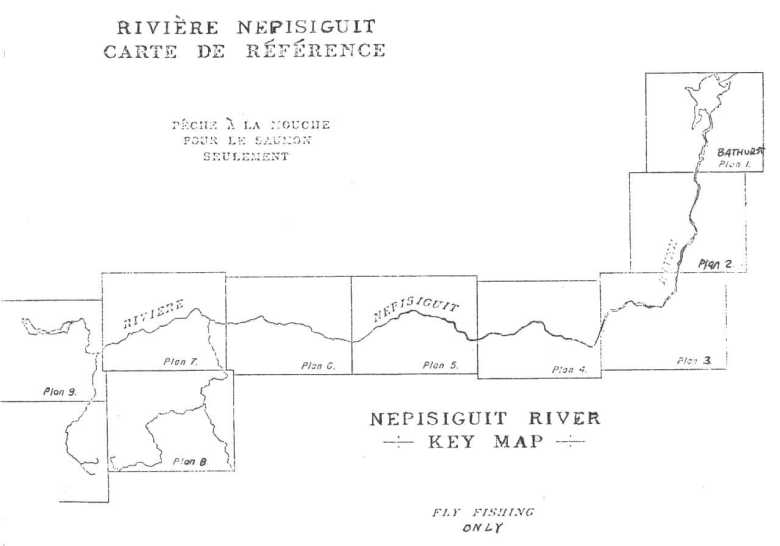 RIVIÈRE NEPISIGUIT
CARTE DE RÉFÉRENCE
PÊCHE À LA MOUCHE
POUR LE SAUMON
SEULEMENT
BATHURST
Plan 1.
Plan 2.
Plan 3.
Plan 4.
NEPISIGUIT
Plan 5.
Plan 6.
RIVIERE
Plan 7.
Plan 8
Plan 9.
NEPISIGUIT RIVER
KEY MAP
FLY FISHING
ONLY